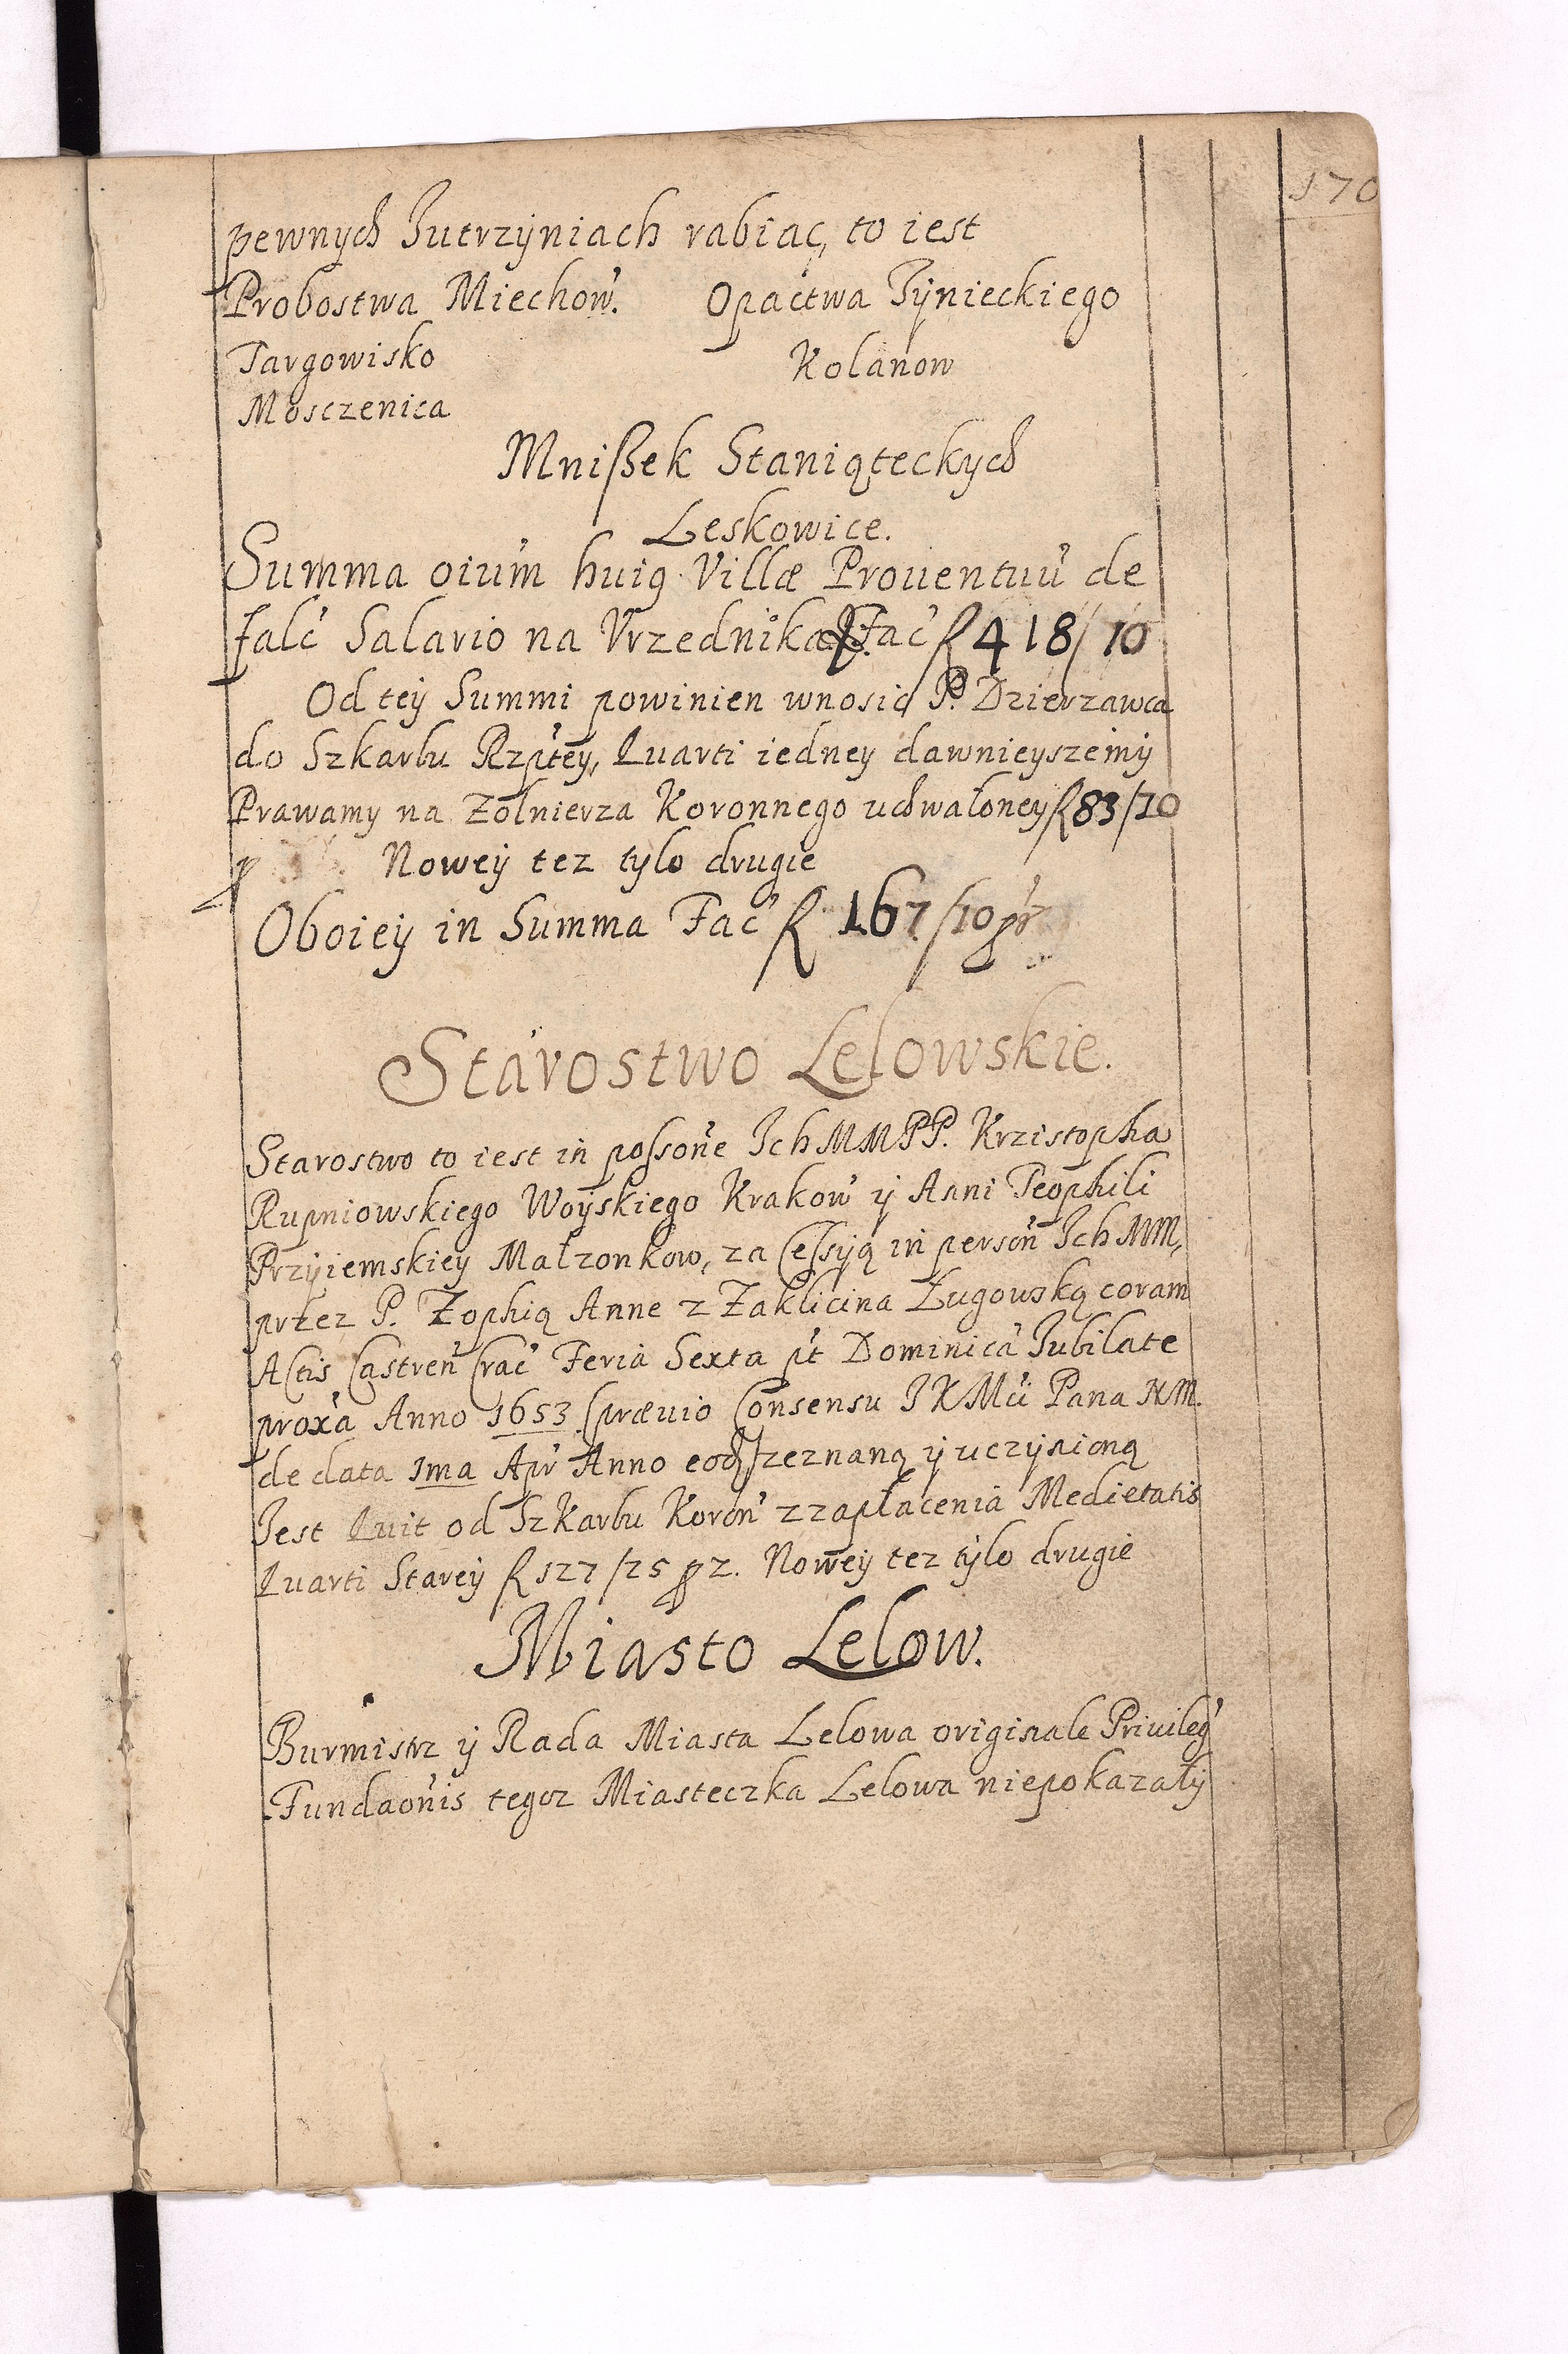 170
pewnych Jutrzyniach rabiac, to iest
Probostwa Miechow. Opactwa Tÿnieckiego
Targowisko Kolanow
Mosczenica
Mnißek Staniąteckych
Leskowice.
Summa oium huig Villæ Prouentuu de
falc Salario na Vrzednika Fac f 418/10
Od teÿ Summi powinien wnosic P. Dzierzawca
do Szkarbu Rzptey, Quarti iedney dawnieyszemÿ
Prawamy na Zolnierza Koronnego uchwaloney f 83/20
Noweÿ tez tylo drugie
Oboieÿ in Summa Fac f 167/10 gr
Starostwo Lelowskie.
Starostwo to iest in possone Ich MM PP. Krzistopha
Rupniowskiego Woÿskiego Krakow ÿ Anni Teophili
Przÿiemskieÿ Małzonkow, za Cessÿą in person Ich MM,
przez P. Zophią Anne z Zaklicina Ługowską coram
Actis Castren Crac Feria Sexta pt Dominica Jubilate
proxa Anno 1653 (præuio Consensu JKMci Pana NM.
de data 1ma Apr Anno eod) zeznaną ÿ uczÿnioną
Jest Quit od Szkarbu Koron z zapłacenia Medietatis
Quarti Stareÿ f 127/25 g 2. Noweÿ tez tÿlo drugie
Miasto Lelow.
Burmistrz ÿ Rada Miasta Lelowa originale Priuileg
Fundaonis tegoz Miasteczka Lelowa niepokazałÿ